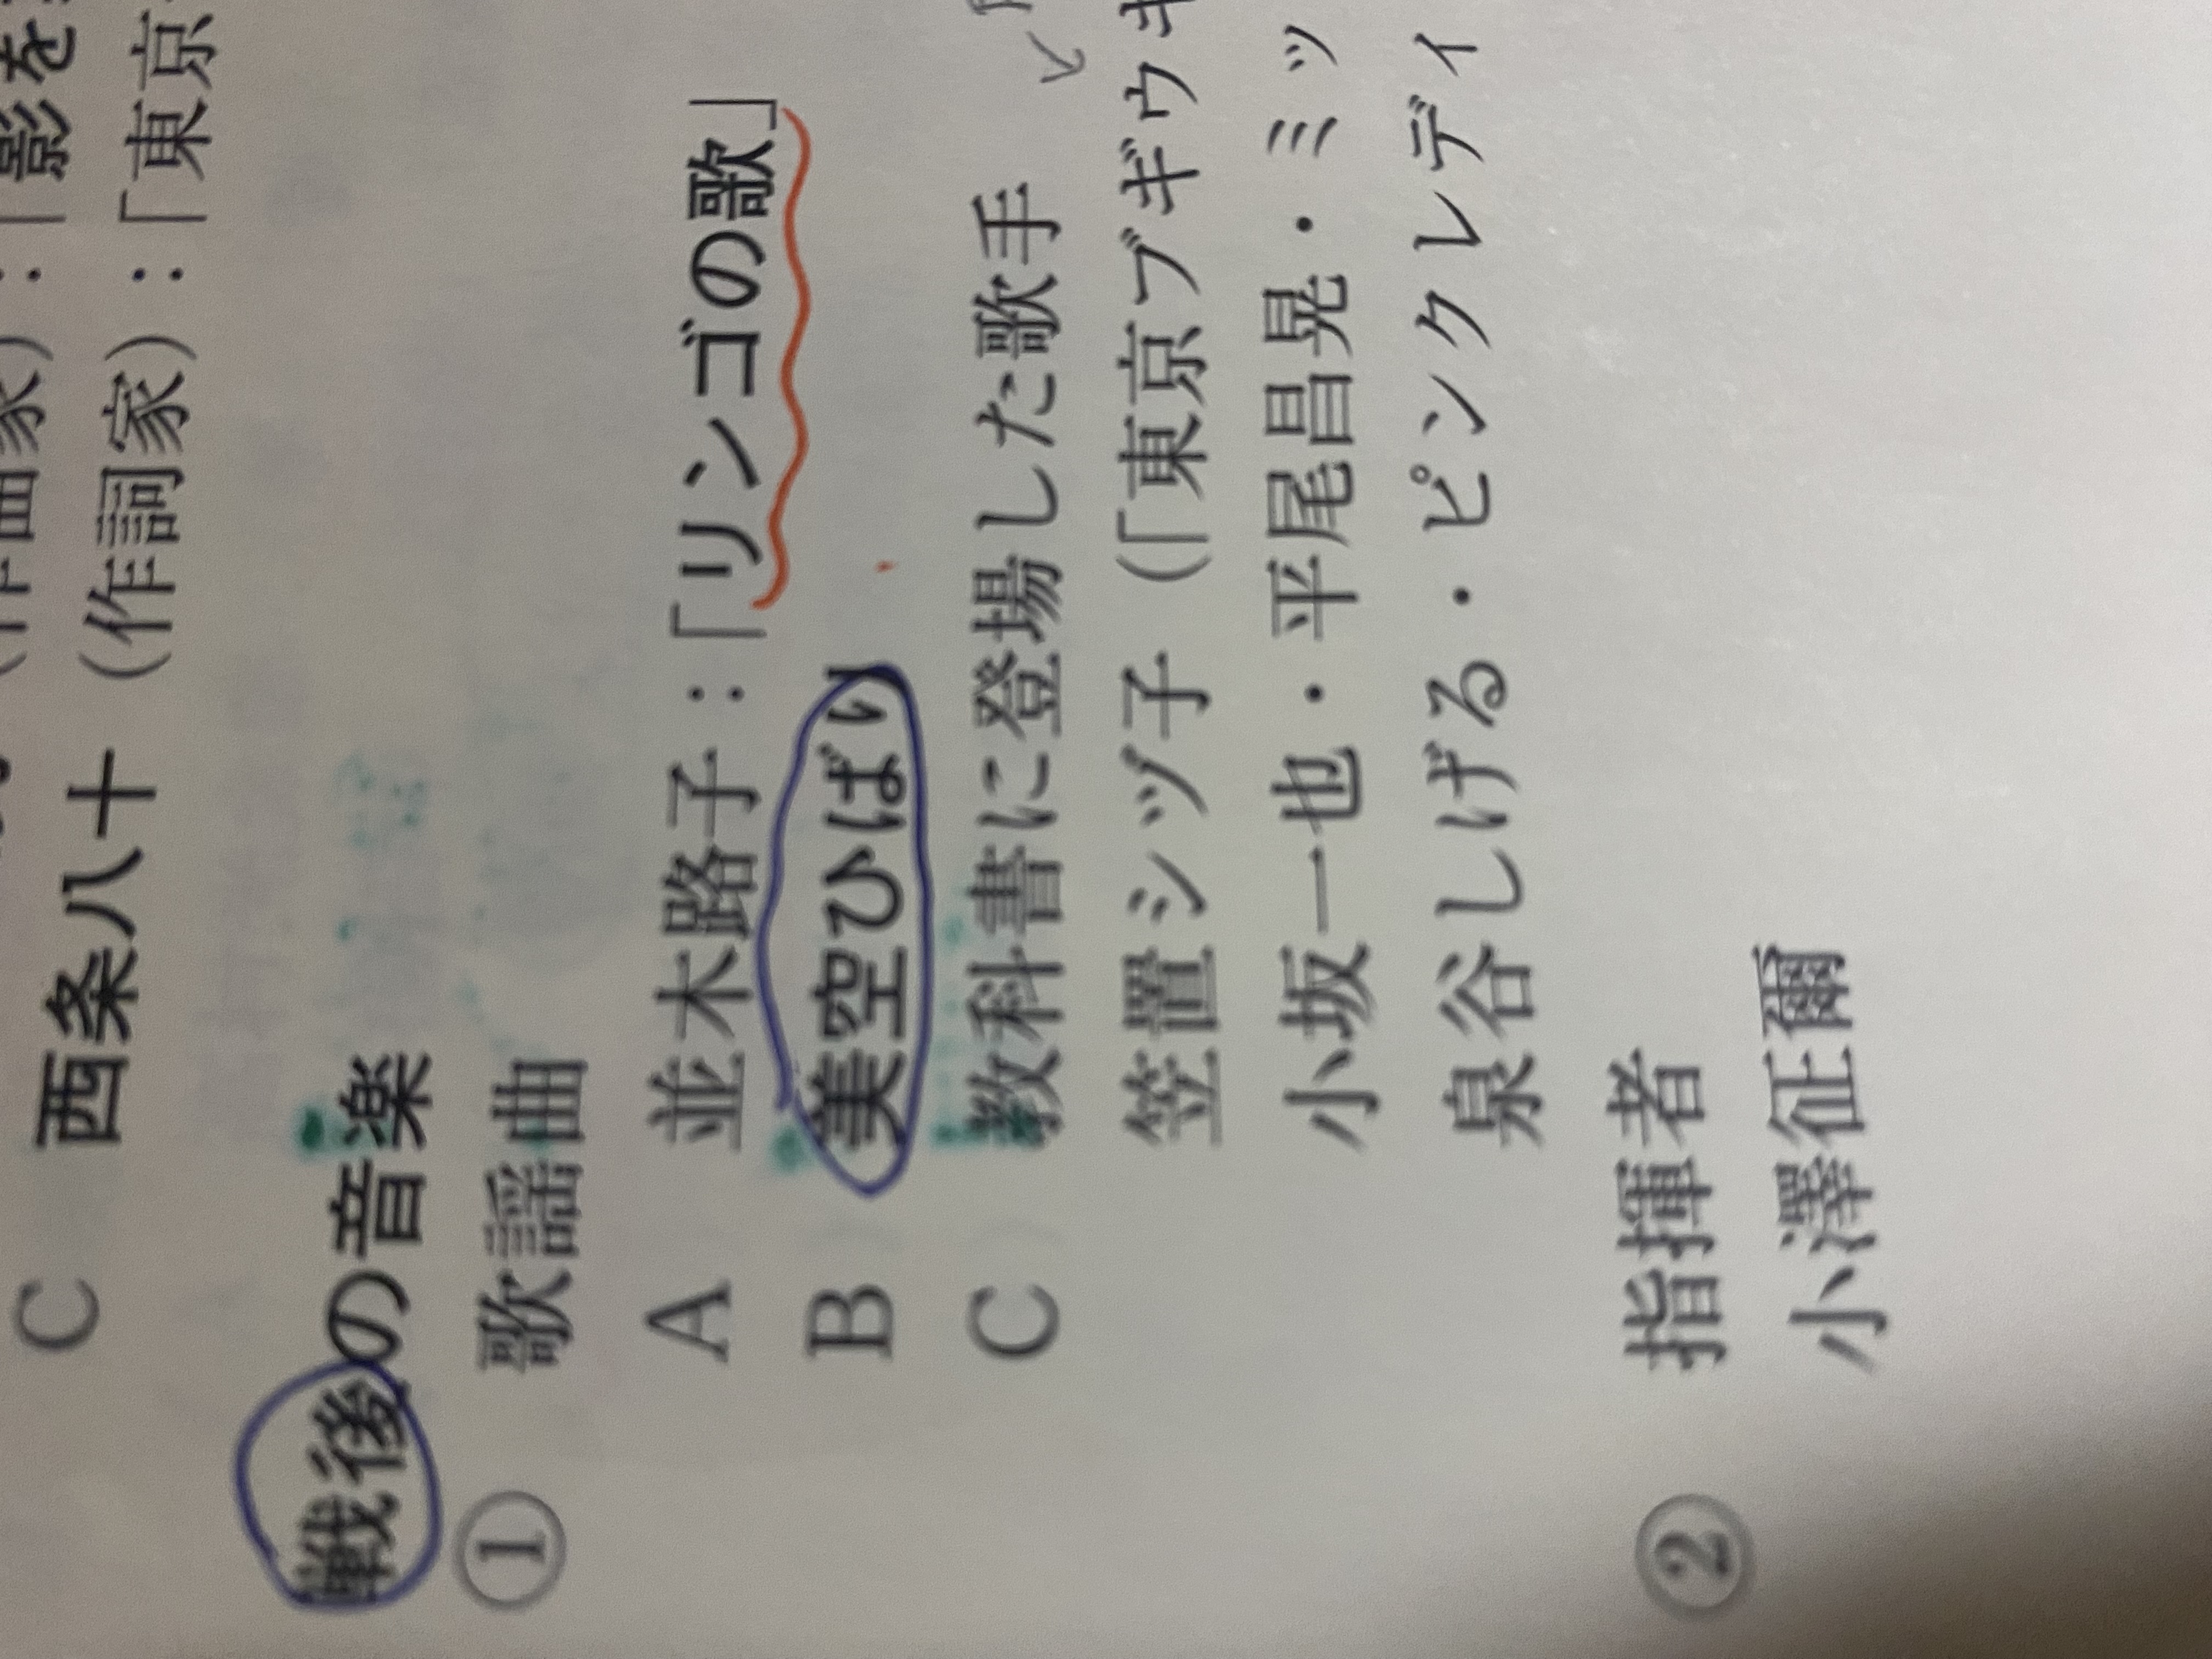 （作曲家）：「影を
C 西条八十（作詞家）：「東京
戦後の音楽
① 歌謡曲
A 並木路子：「リンゴの歌」
B 美空ひばり
C 教科書に登場した歌手
笠置シヅ子（「東京ブギウギ
小坂一也・平尾昌晃・ミッ
泉谷しげる・ピンクレディ
② 指揮者
小澤征爾